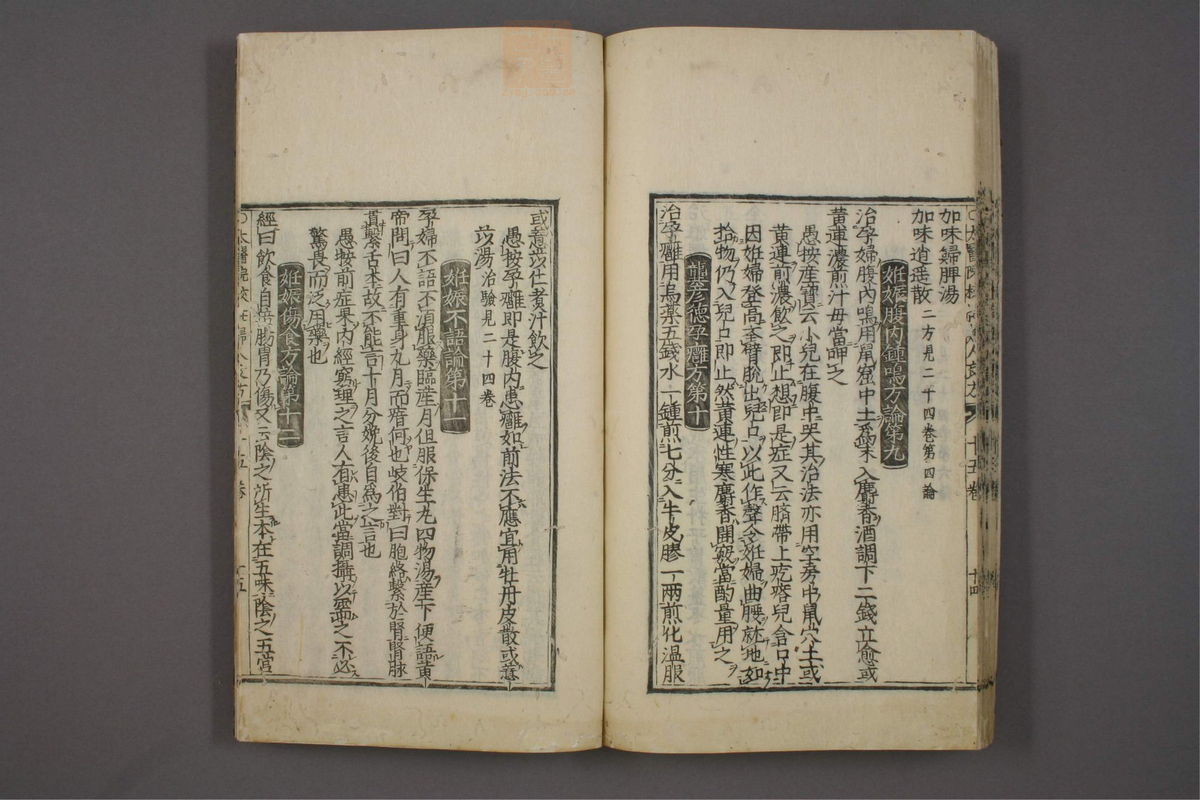 加味歸脾湯
加味逍遥散 二方見二十四卷第四論
妊娠腹內鍾鳴方論第九
治孕婦腹內鳴用鼠窟中土爲末入麝香酒調下二錢立愈或
黄連濃煎汁母當呷之
愚按産寶云小兒在腹中哭其治法亦用空房中鼠穴土或
黄連煎濃飲之即止想即是症又云臍帶上疙瘩兒含口中
因妊婦登高舉臂脫出兒口以此作聲令妊婦曲腰就地如
拾物仍入兒口即止然黄連性寒麝香開竅當酌量用之
龔彦德孕癰方第十
治孕癰用烏藥五錢水一鍾煎七分入牛皮膠一兩煎化温服
或薏苡仁煮汁飲之
愚按孕癰即是腹內患癰如前法不應宜用牡丹皮散或薏
苡湯 治驗見二十四卷
妊娠不語論第十一
孕婦不語不須服藥臨産月但服保生丸四物湯産下便語黄
帝問曰人有重身九月而瘖何也岐伯對曰胞絡繫於腎腎脉
貫繫舌本故不能言十月分娩後自爲之言也
愚按前症果內經窮理之言人有患此當調攝以需之不必
驚畏而泛用藥也
妊娠傷食方論第十二
經曰飲食自倍腸胃乃傷又云陰之所生本在五味陰之五宮